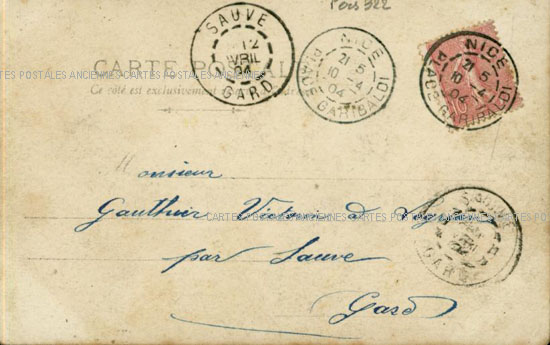 Pers 322
SAUVE
12
AVRIL
04
GARD
NICE
21 5
10 -4
04
PLACE GARIBALDI
NICE
21 5
10 -4
04
PLACE GARIBALDI
CARTE POSTALE
Ce côté est exclusivement
CARTES POSTALES ANCIENNES CARTES POSTALES ANCIENNES CARTES POSTALES
Monsieur
Gauthier Victorin de
par Sauve
Gard
GARD